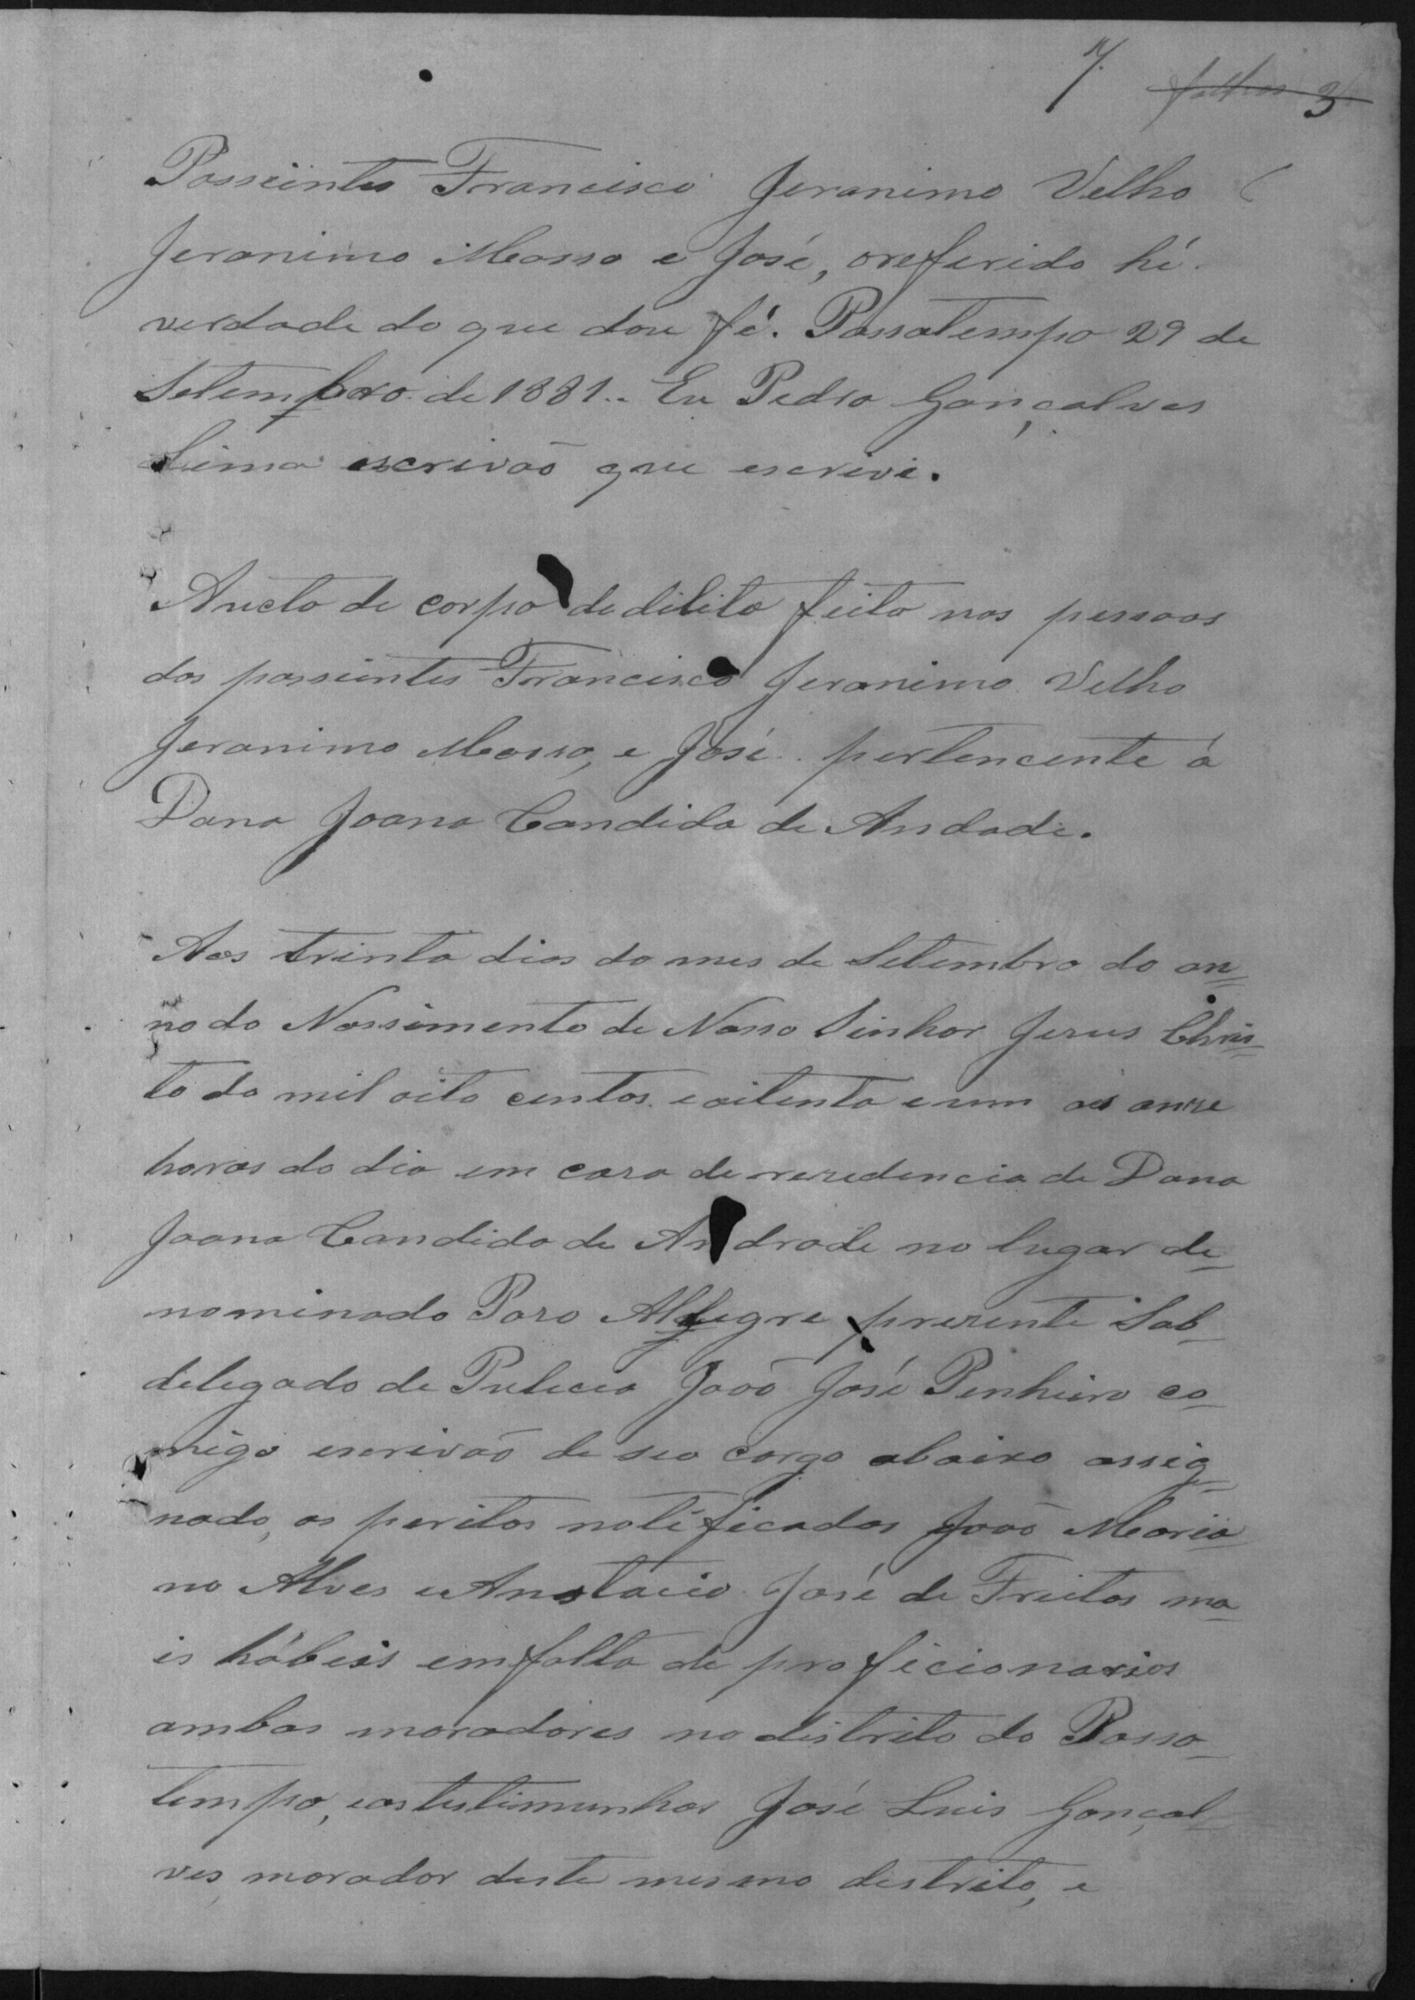 7. folhas 3
Passientes Francisco Jeronimo Velho
Jeronimo Mosso e José, oreferido hé
verdade do que dou fé. Passatempo 29 de
Setembro de 1881. Eu Pedro Gonçalves
Lima escrivaõ que escrivi.
Aucto de corpo de dilito feito nas pessoas
dos passientes Francisco Jeronimo Velho
Jeronimo Mosso, e José pertencente á
Dona Joana Candida de Andade.
Aos trinta dias do mes de Setembro do an=
no do Nassimento de Nosso Sinhor Jesus Chris=
to do mil oito centos e oitenta e um as onze
horas do dia em casa de rezedencia de Dona
Joana Candida de Andrade no lugar de=
nominado Poro Allegre prezente Sob=
delegado de Pulecia Joaõ José Penheiro co=
migo escrivaõ de seo cargo abaixo assig=
nado, os peritos notificados Joaõ Maria
no Alves e Anstacio José de Freitas ma=
is hábeis emfalta de proficionarios
ambos moradores no distrito do Passa=
tempo, eastestimunhas José Luis Gonçal=
ves, morador deste mesmo distrito, e